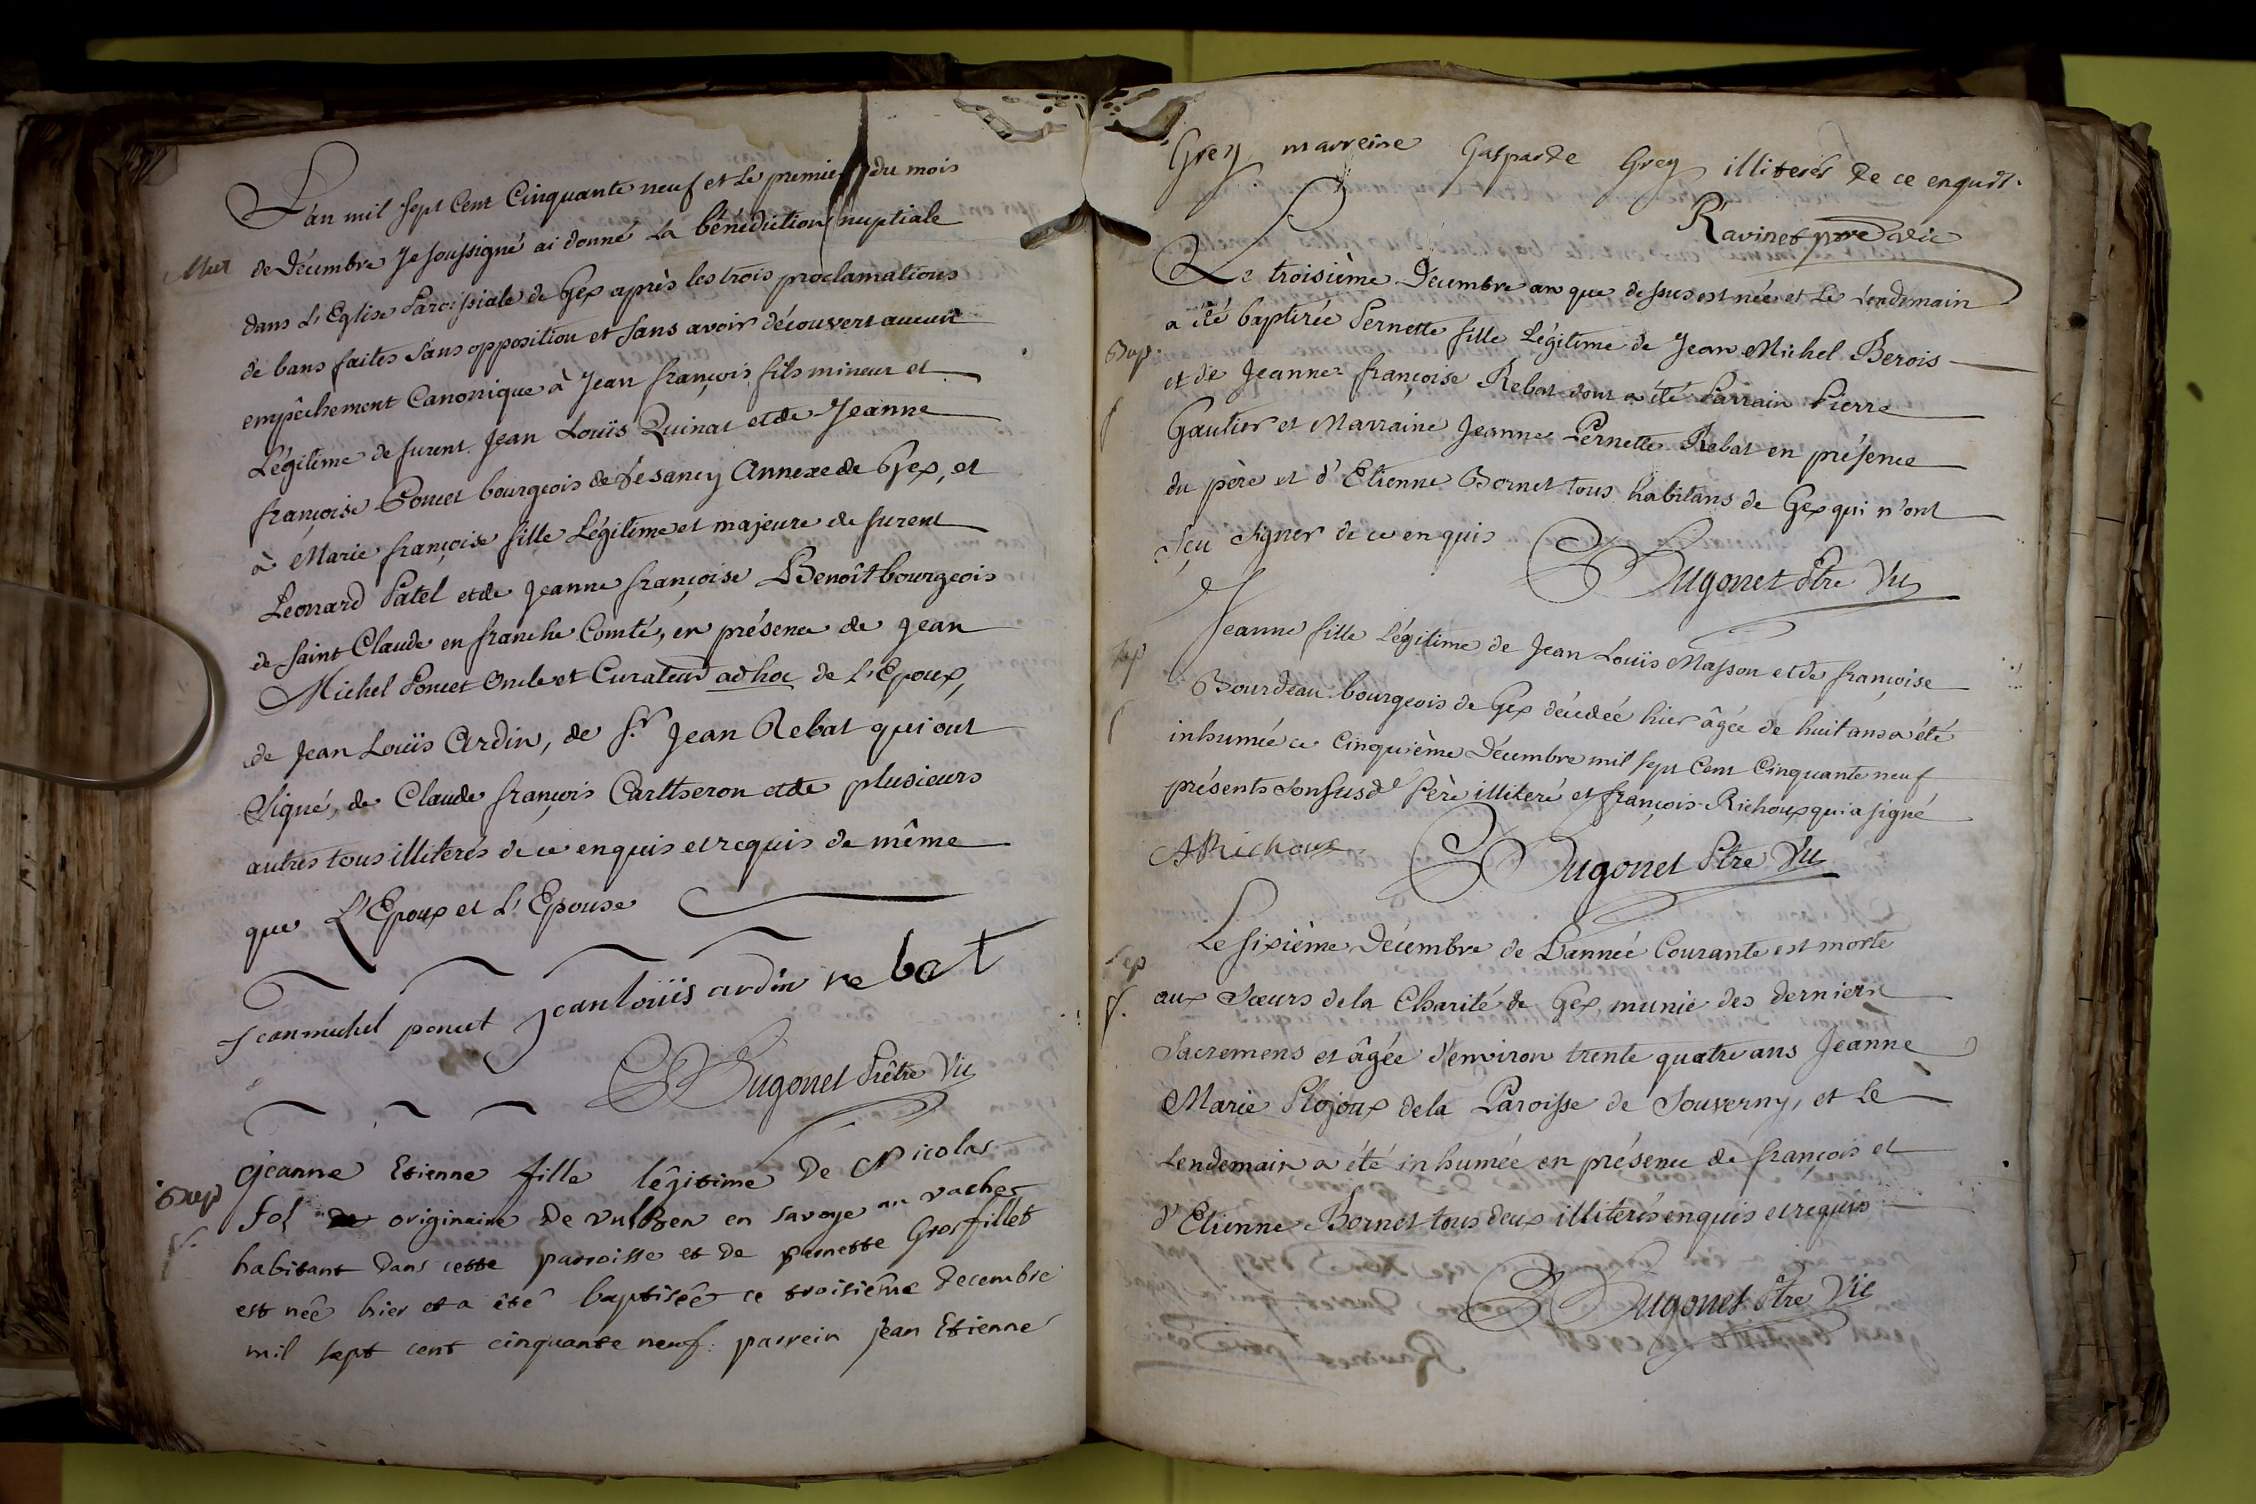 L'an mil sept Cent Cinquante neuf et le premier du mois
de Décembre Je soussigné ai donné la bénédiction nuptiale
dans L'Eglise Paroissiale de Gex après les trois proclamations
de bans faites sans opposition et sans avoir découvert aucun
empêchement Canonique à Jean françois fils mineur et
Légitime de furent Jean Louïs Quinat et de Jeanne
françoise Poncet bourgeois de Vesancy Annexe de Gex, et
à Marie françoise fille Légitime et majeure de furent
Leonard Patel et de Jeanne françoise Benoît bourgeois
de Saint Claude en franche Comté, en présence de Jean
Michel Poncet Oncle et Curateur ad hoc de L'Epoux,
de Jean Louïs Ardin, de Sr. Jean Rebat qui ont
Signé, de Claude françois et de plusieurs
autres tous illiterés de ce enquis et requis de même
que L'Epoux et L'Epouse
Jean michel poncet jean louïs ardin rebat
Dugonet Prêtre Vic
Bap
Jeanne Etienne fille légitime De Nicolas
fol originaire De vulben en savoye un vacher
habitant Dans cette parroisse et De pernette Grosfillet
est née hier et a êté baptisée ce troisiême Decembre
mil sept cent cinquante neuf: parrein jean Etienne
Grey marreine Gasparde Grey illiterés De ce enquis.
Ravinet prre vic
Bap.
Le troisième Décembre an que dessus est née et le lendemain
a été baptisée Pernette fille Légitime de Jean Michel Berois
et de Jeanne françoise Rebat dont a été Parrain Pierre
Gautier et Marraine Jeanne Pernette Rebat en présence
du père et d'Etienne Bornet tous habitans de Gex qui n'ont
sçu signer de ce enquis
Dugonet Ptre Vic
Sep
Jeanne fille Légitime de Jean Louïs Masson et de françoise
Bourdeau bourgeois de Gex décédée hier âgée de huit ans a été
inhumée ce Cinquième Décembre mil sept Cent Cinquante neuf
présents son susdt Père illiteré et françois Richoux qui a signé
Richoux
Dugonet Ptre Vic
Sep
f.
Le sixième Décembre de L'année Courante est morte
aux Sœurs de la Charité de Gex, munie des derniers
Sacremens et âgée d'environ trente quatre ans Jeanne
Marie Plojoux de la Paroisse de Souverny, et le
lendemain a été inhumée en présence de françois et
d'Etienne Bornet tous deux illiterés enquis et requis
Dugonet Ptre Vic